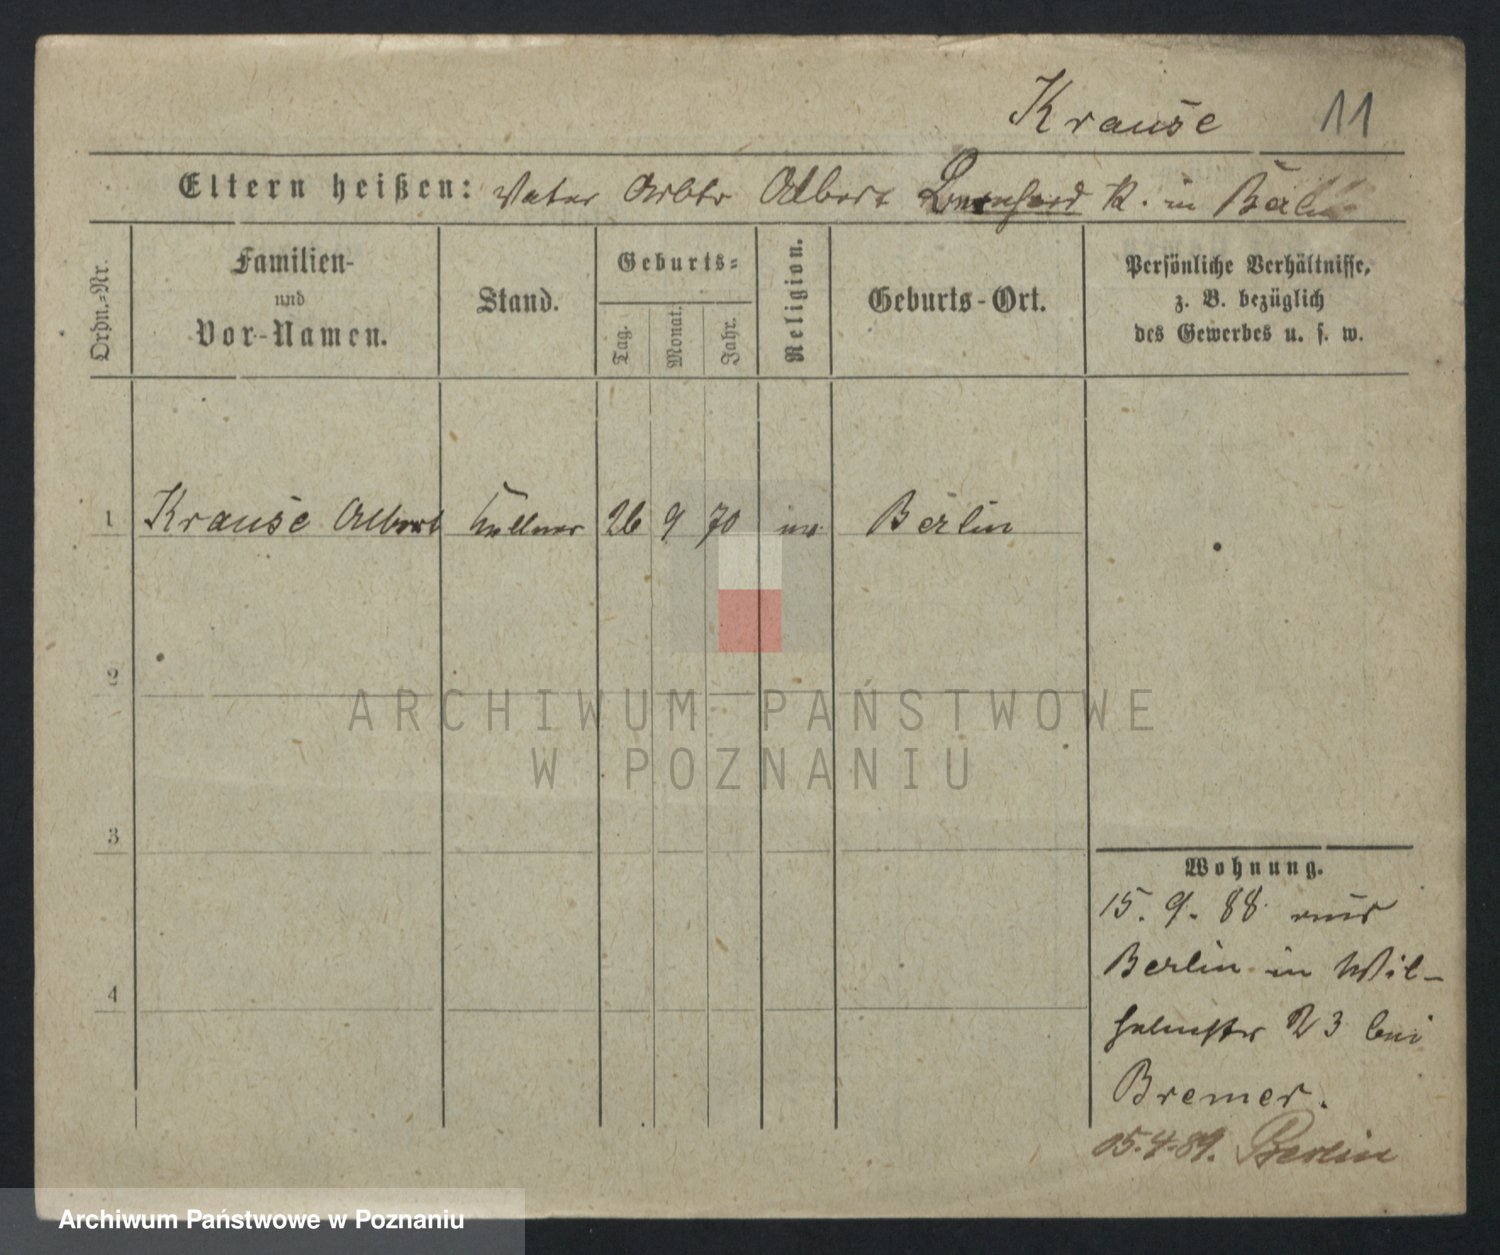 Krause 11
Eltern heißen: Vater Arbtr Albert Bernhard K. in Berlin
Ordn.-Nr.
Familien-
und
Vor-Namen.
Stand.
Geburts-
Tag.
Monat.
Jahr.
Religion.
Geburts-Ort.
Persönliche Verhältnisse,
z. B. bezüglich
des Gewerbes u. s. w.
1 Krause Albert Kellner 26 9 70 Berlin
2
3
4
ARCHIWUM PAŃSTWOWE
W POZNANIU
Wohnung.
15. 9. 88 aus
Berlin in Wil-
helmstr 23 bei
Bremer.
05.4.89. Berlin
Archiwum Państwowe w Poznaniu